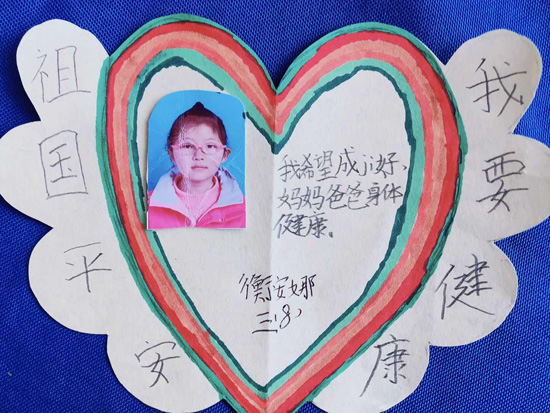 祖国平安
我希望成ji好、
妈妈爸爸身体
健康。
衡安娜
三(8)
我要健康